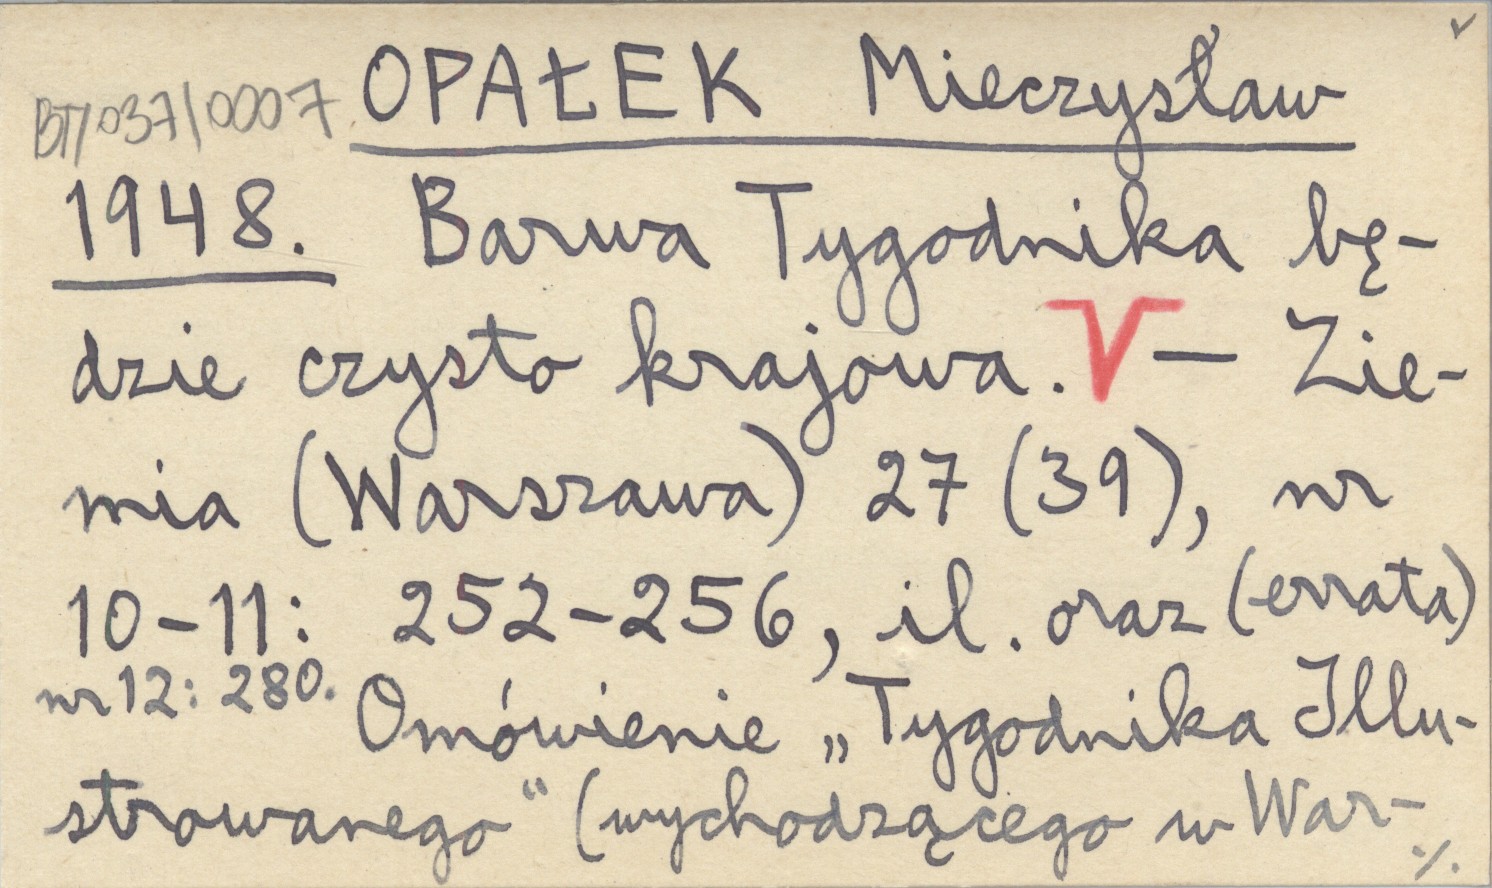 BT/037/0007 OPAŁEK Mieczysław
1948. Barwa Tygodnika bę-
dzie czysto krajowa. V — Zie-
mia (Warszawa) 27 (39), nr
10-11: 252-256, il. oraz (errata)
nr 12: 280. Omówienie „Tygodnika Illu-
strowanego“ (wychodzącego w War-
./.